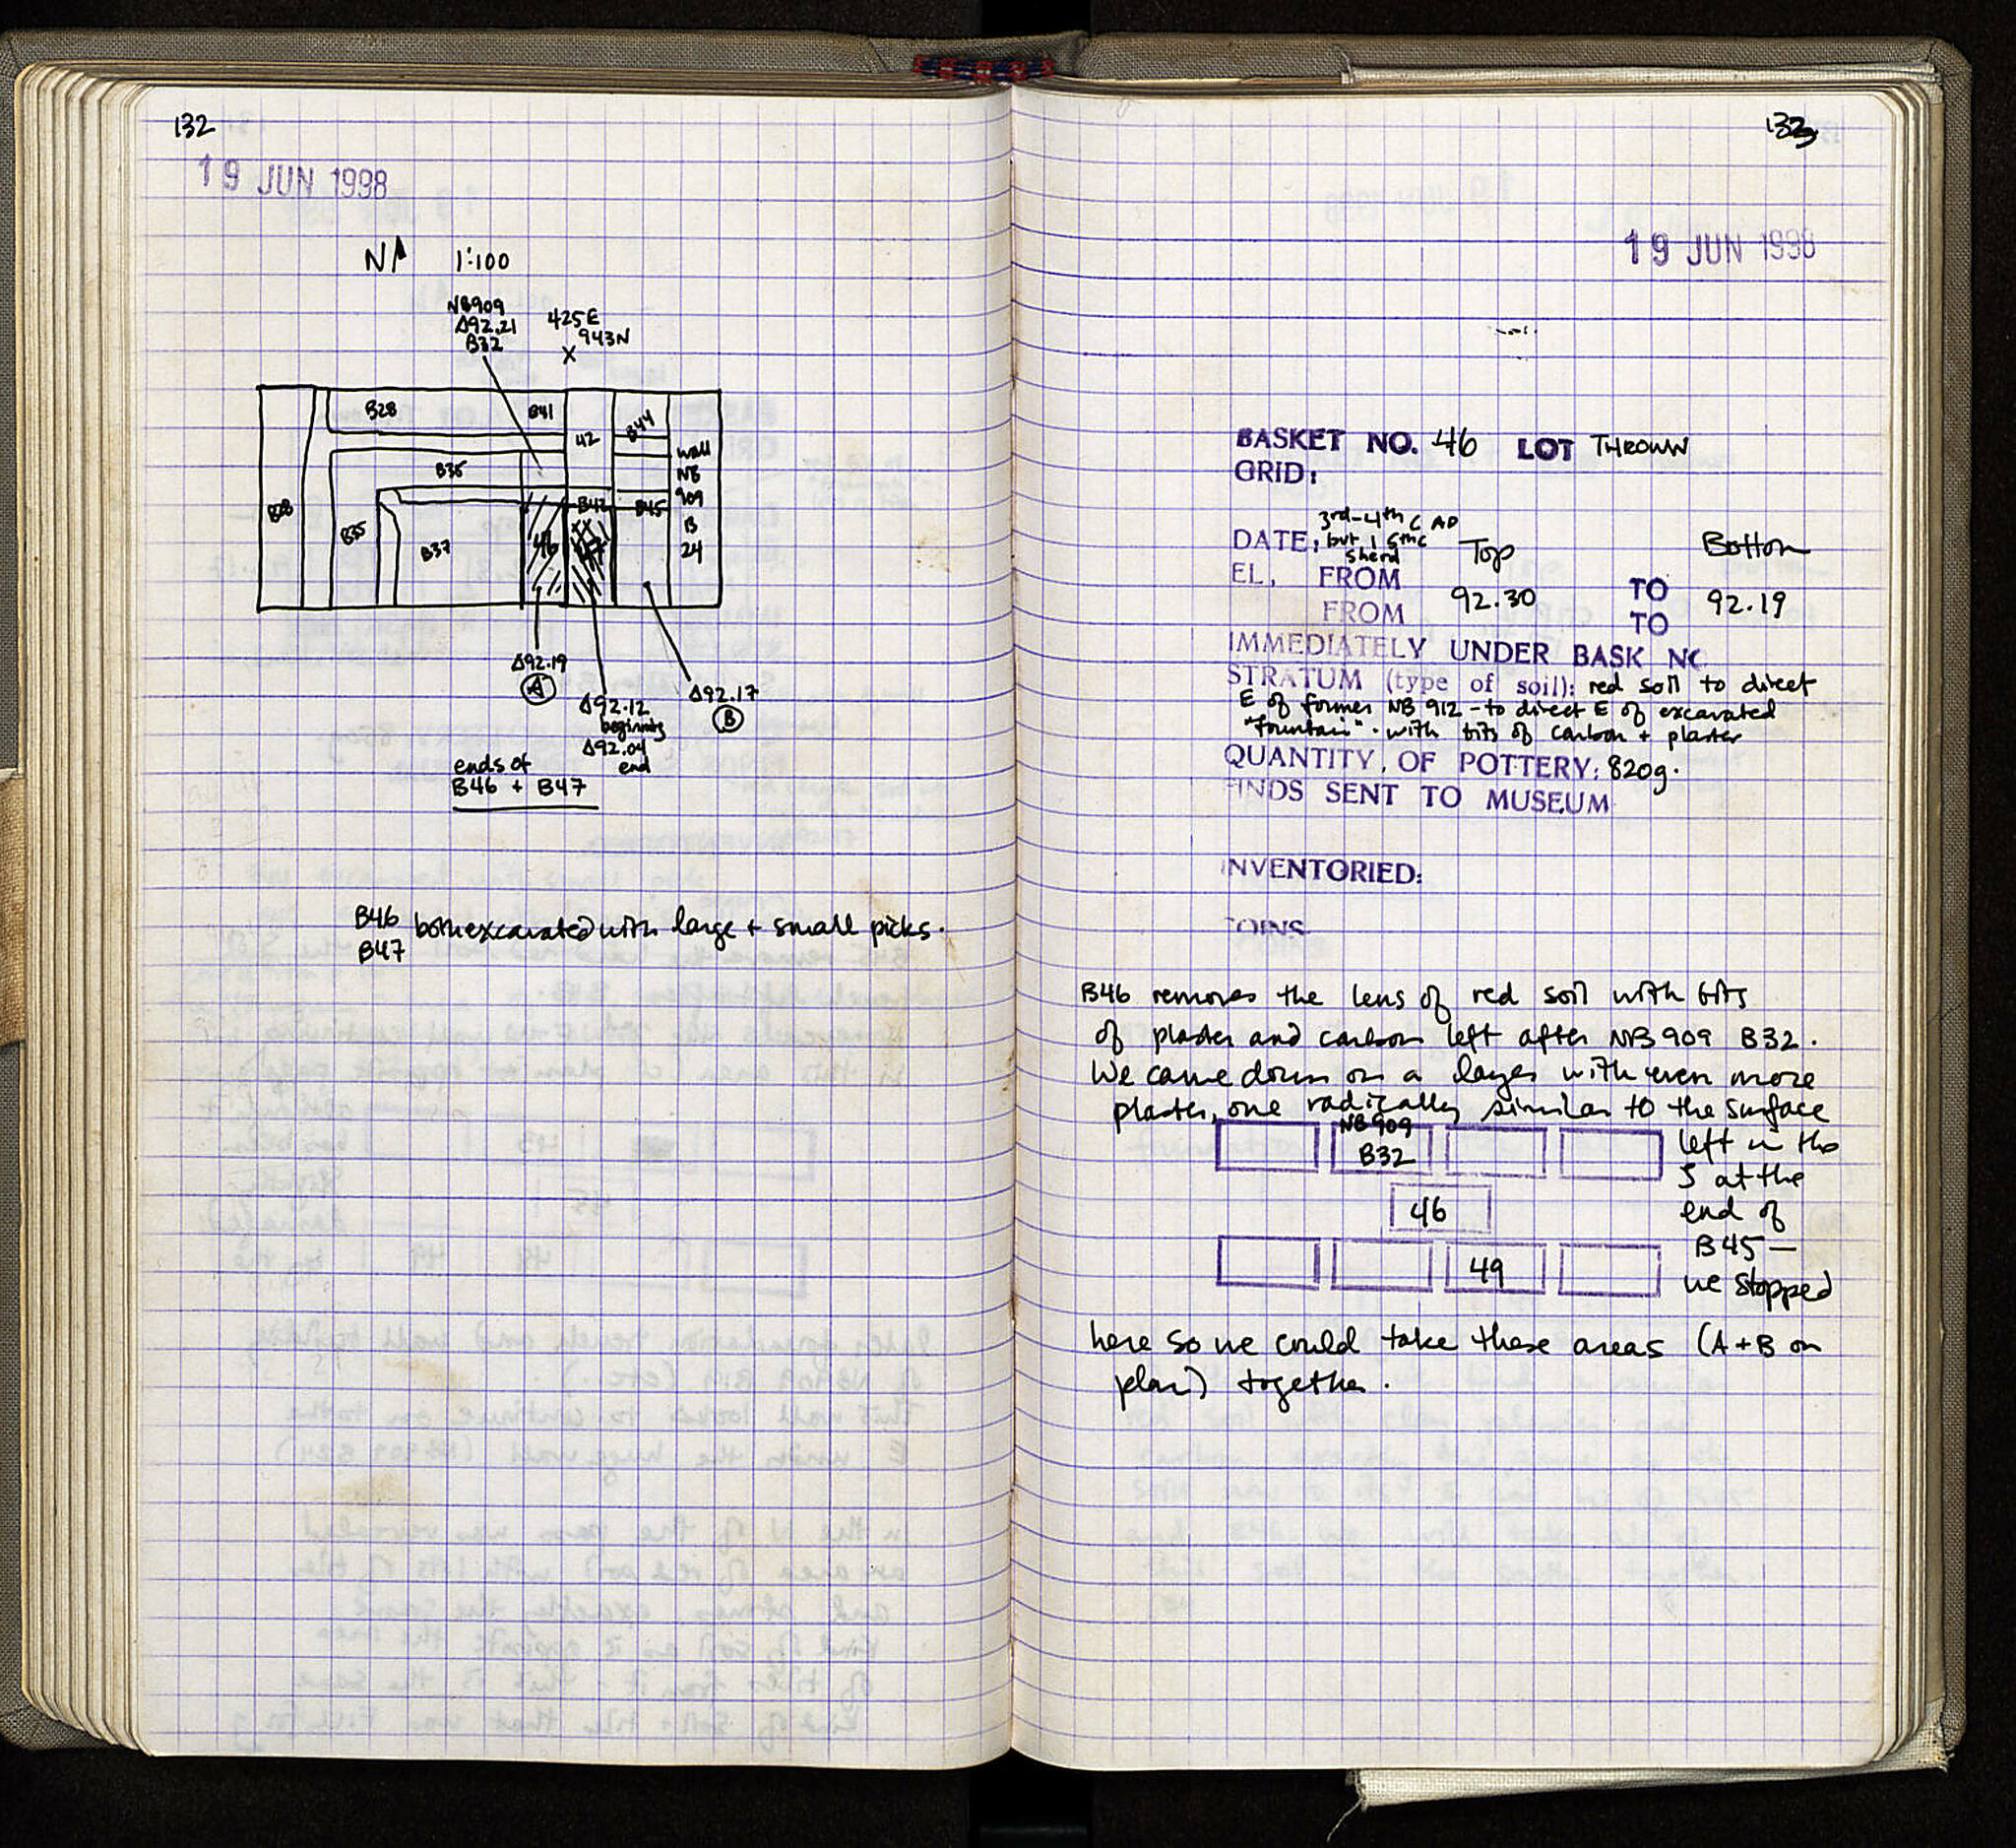 132
19 JUN 1998
N 1:100
NB909
Δ92.21
B32
425E
943N
X
B28
B41
42
B44
wall
NB
909
B
24
B35
B28
B35
B37
46
B42
47
B45
Δ92.19
A
Δ92.12
beginning
Δ92.04
end
Δ92.17
B
ends of
B46 + B47
B46 both excavated with large + small picks.
B47
133
19 JUN 1998
BASKET NO. 46 LOT THROWN
GRID:
DATE: 3rd-4th C AD
but 1 6thc
sherd
Top Bottom
EL, FROM 92.30 TO 92.19
FROM TO
IMMEDIATELY UNDER BASK NO
STRATUM (type of soil): red soil to direct
E of former NB 912 - to direct E of excavated
"fountain" - with bits of carbon + plaster
QUANTITY, OF POTTERY: 820g.
FINDS SENT TO MUSEUM
INVENTORIED:
COINS
B46 removes the lens of red soil with bits
of plaster and carbon left after NB 909 B32.
We came down on a layer with even more
plaster, one radically similar to the surface
NB909
B32
46
49
left in the
S at the
end of
B45 —
we stopped
here so we could take these areas (A + B on
plan) together.